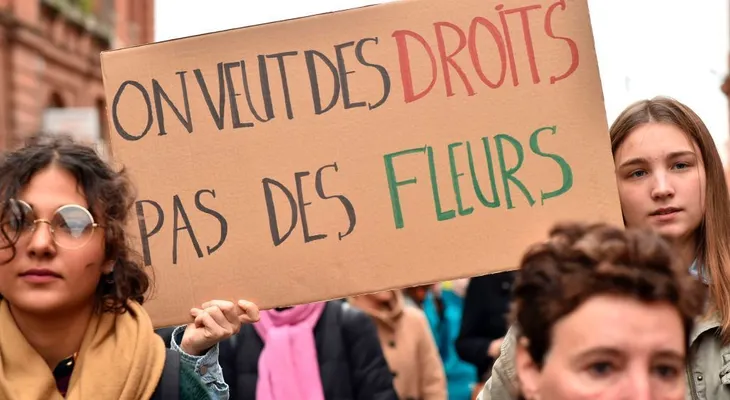 ON VEUT DES DROITS
PAS DES FLEURS